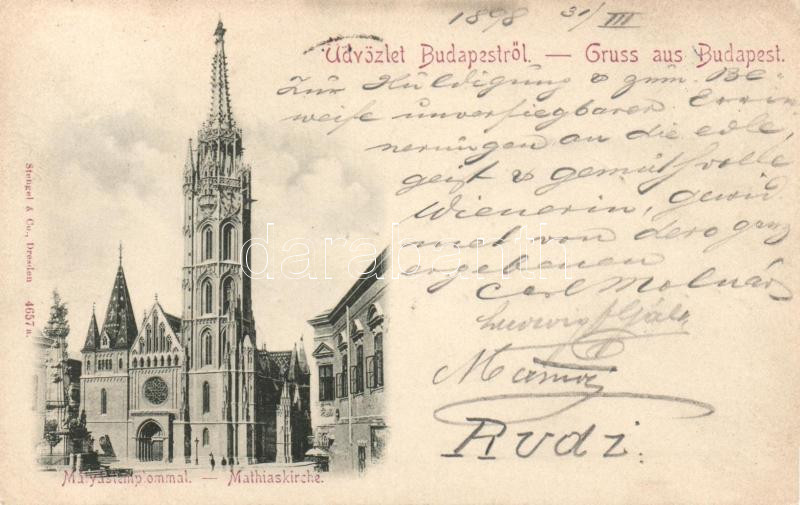 1898 31/III
Üdvözlet Budapestről. — Gruss aus Budapest.
Zur Huldigung & zum Be-
weise unversiegbarer Errin
nerungen an die edle,
geist & gemüthvolle
Wienerin, gewid
met von dero ganz
ergebenen
Carl Molnár
Ludwig
Rudi
Stengel & Co., Dresden 4657 B.
darabanth
Mátyástemplommal. — Mathiaskirche.